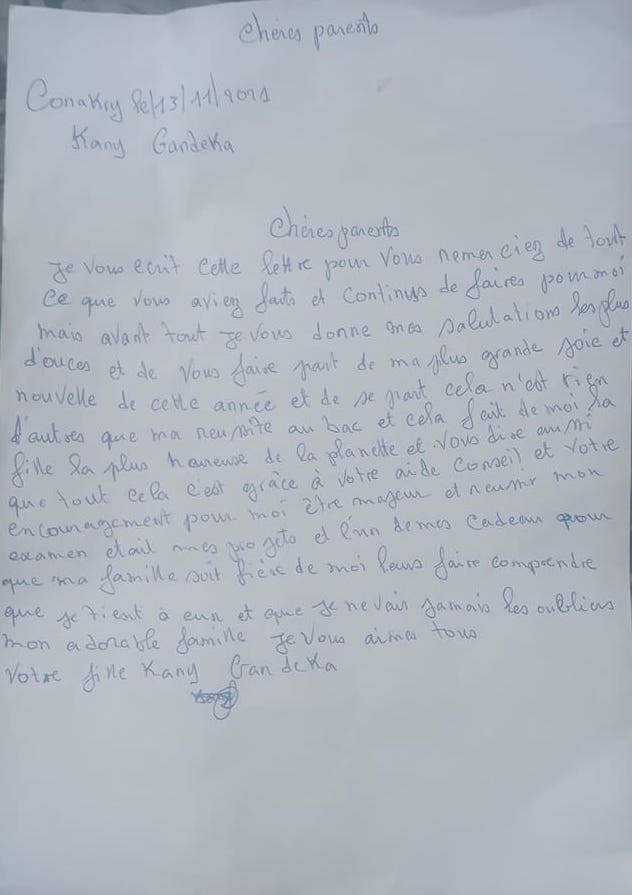 Chères parents
Conakry le/13/11/2021
Kany Gandeka
Chères parents
Je vous ecrit cette lettre pour vous remerciez de tout
ce que vous aviez faits et continus de faires pour moi
mais avant tout je vous donne mes salutations les plus
d'ouces et de vous faire part de ma plus grande joie et
nouvelle de cette année et de se part cela n'est rien
d'autres que ma reussite au bac et cela fait de moi la
fille la plus heureuse de la planette et vous dire aussi
que tout cela c'est grâce à votre aide conseil et votre
encouragement pour moi être majeur et reussir mon
examen etait mes projets et l'un de mes cadeau pour
que ma famille soit fière de moi leurs faire comprendre
que je tient à eux et que je ne vais jamais les oubliers
mon adorable famille je vous aimes tous
Votre fille Kany Gandeka